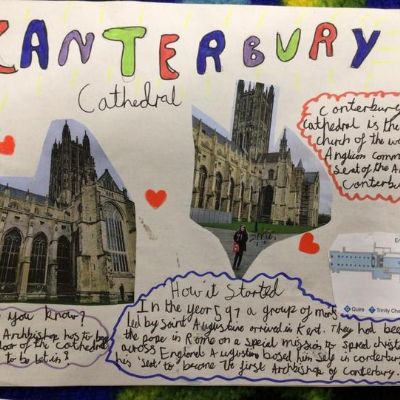 CANTERBURY
Cathedral
Canterbury
Cathedral is the
church of the wo
Anglion comm
Seat of the A
Canterbu
Quire Trinity Cha
you know?
Archbishop has to
door of the Cathedral
to be let in?
How it Started
In the year 597 a group of monks
led by Saint Augustine arrived in Kent. They had bee
the pope in Rome on a special mission to spread christ
across England. Augustine based him self in canterbury
his 'seat' to become the first Archbishop of Canterbury.